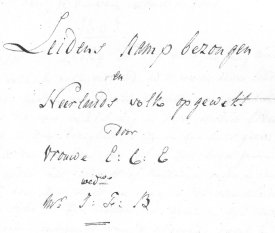 Leidens Ramp bezongen
en
Neerlands volk opgewekt
Door
Vrouwe E: C: E
wed:we
Mr: J: F: B